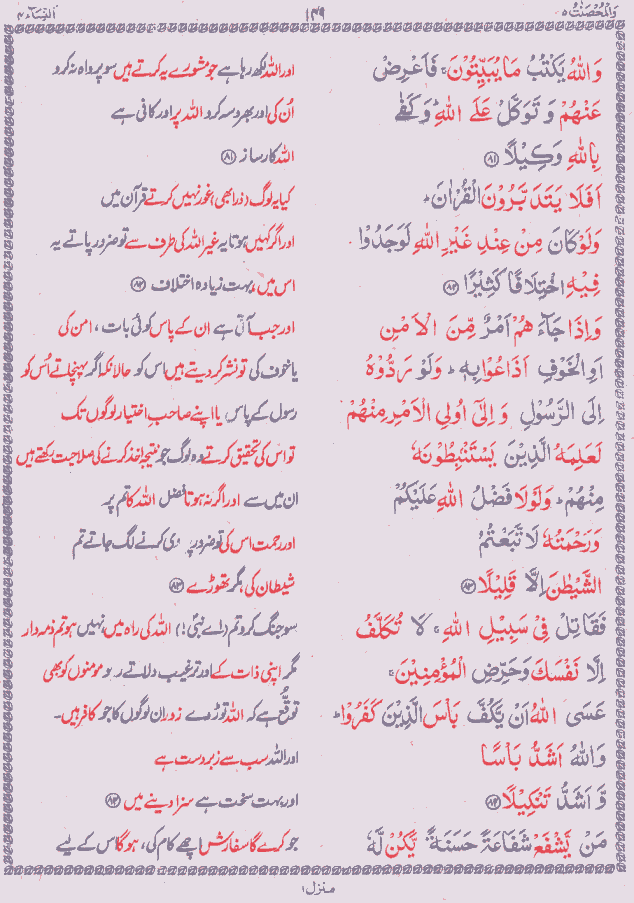 وَالْمُحْصَنٰتُ ۵ ۱۴۹ النِّسَآء ۴
وَاللّٰهُ يَكْتُبُ مَا يُبَيِّتُوْنَ ۚ فَاَعْرِضْ اور اللہ لکھ رہا ہے جو مشورے یہ کرتے ہیں سو پرواہ نہ کرو
عَنْهُمْ وَ تَوَكَّلْ عَلَى اللّٰهِ ؕ وَ كَفٰى اُن کی اور بھروسہ کرو اللہ پر اور کافی ہے
بِاللّٰهِ وَكِيْلًا ﴿۸۱﴾ اللہ کارساز ﴿۸۱﴾
اَفَلَا يَتَدَبَّرُوْنَ الْقُرْاٰنَ ؕ کیا یہ لوگ (ذرا بھی) غور نہیں کرتے قرآن میں
وَلَوْ كَانَ مِنْ عِنْدِ غَيْرِ اللّٰهِ لَوَجَدُوْا اور اگر کہیں ہوتا یہ غیر اللہ کی طرف سے تو ضرور پاتے یہ
فِيْهِ اخْتِلَافًا كَثِيْرًا ﴿۸۲﴾ اس میں، بہت زیادہ اختلاف ﴿۸۲﴾
وَاِذَا جَآءَ هُمْ اَمْرٌ مِّنَ الْاَمْنِ اور جب آتی ہے ان کے پاس کوئی بات، امن کی
اَوِ الْخَوْفِ اَذَاعُوْا بِهٖ ؕ وَلَوْ رَدُّوْهُ یا خوف کی تو نشر کر دیتے ہیں اس کو حالانکہ اگر پہنچاتے اُس کو
اِلَى الرَّسُوْلِ وَ اِلٰٓى اُولِى الْاَمْرِ مِنْهُمْ رسول کے پاس، یا اپنے صاحبِ اختیار لوگوں تک
لَعَلِمَهُ الَّذِيْنَ يَسْتَنْۢبِطُوْنَهٗ تو اس کی تحقیق کرتے وہ لوگ جو نتیجہ اخذ کرنے کی صلاحیت رکھتے ہیں
مِنْهُمْ ؕ وَلَوْلَا فَضْلُ اللّٰهِ عَلَيْكُمْ ان میں سے اور اگر نہ ہوتا فضل اللہ کا تم پر
وَرَحْمَتُهٗ لَاتَّبَعْتُمُ اور رحمت اس کی تو ضرور کرنے لگ جاتے تم
الشَّيْطٰنَ اِلَّا قَلِيْلًا ﴿۸۳﴾ شیطان کی، مگر تھوڑے ﴿۸۳﴾
فَقَاتِلْ فِيْ سَبِيْلِ اللّٰهِ ۚ لَا تُكَلَّفُ سو جنگ کرو تم (اے نبیؐ!) اللہ کی راہ میں، نہیں ہو تم ذمہ دار
اِلَّا نَفْسَكَ وَحَرِّضِ الْمُؤْمِنِيْنَ ۚ مگر اپنی ذات کے اور ترغیب دلاتے رہو مومنوں کو بھی
عَسَى اللّٰهُ اَنْ يَّكُفَّ بَاْسَ الَّذِيْنَ كَفَرُوْا ؕ توقّع ہے کہ اللہ توڑ دے زور ان لوگوں کا جو کافر ہیں۔
وَاللّٰهُ اَشَدُّ بَاْسًا اور اللہ سب سے زبردست ہے
وَّ اَشَدُّ تَنْكِيْلًا ﴿۸۴﴾ اور بہت سخت ہے سزا دینے میں ﴿۸۴﴾
مَنْ يَّشْفَعْ شَفَاعَةً حَسَنَةً يَّكُنْ لَّهٗ جو کرے گا سفارش اچھے کام کی، ہوگا اس کے لیے
منزل ۱